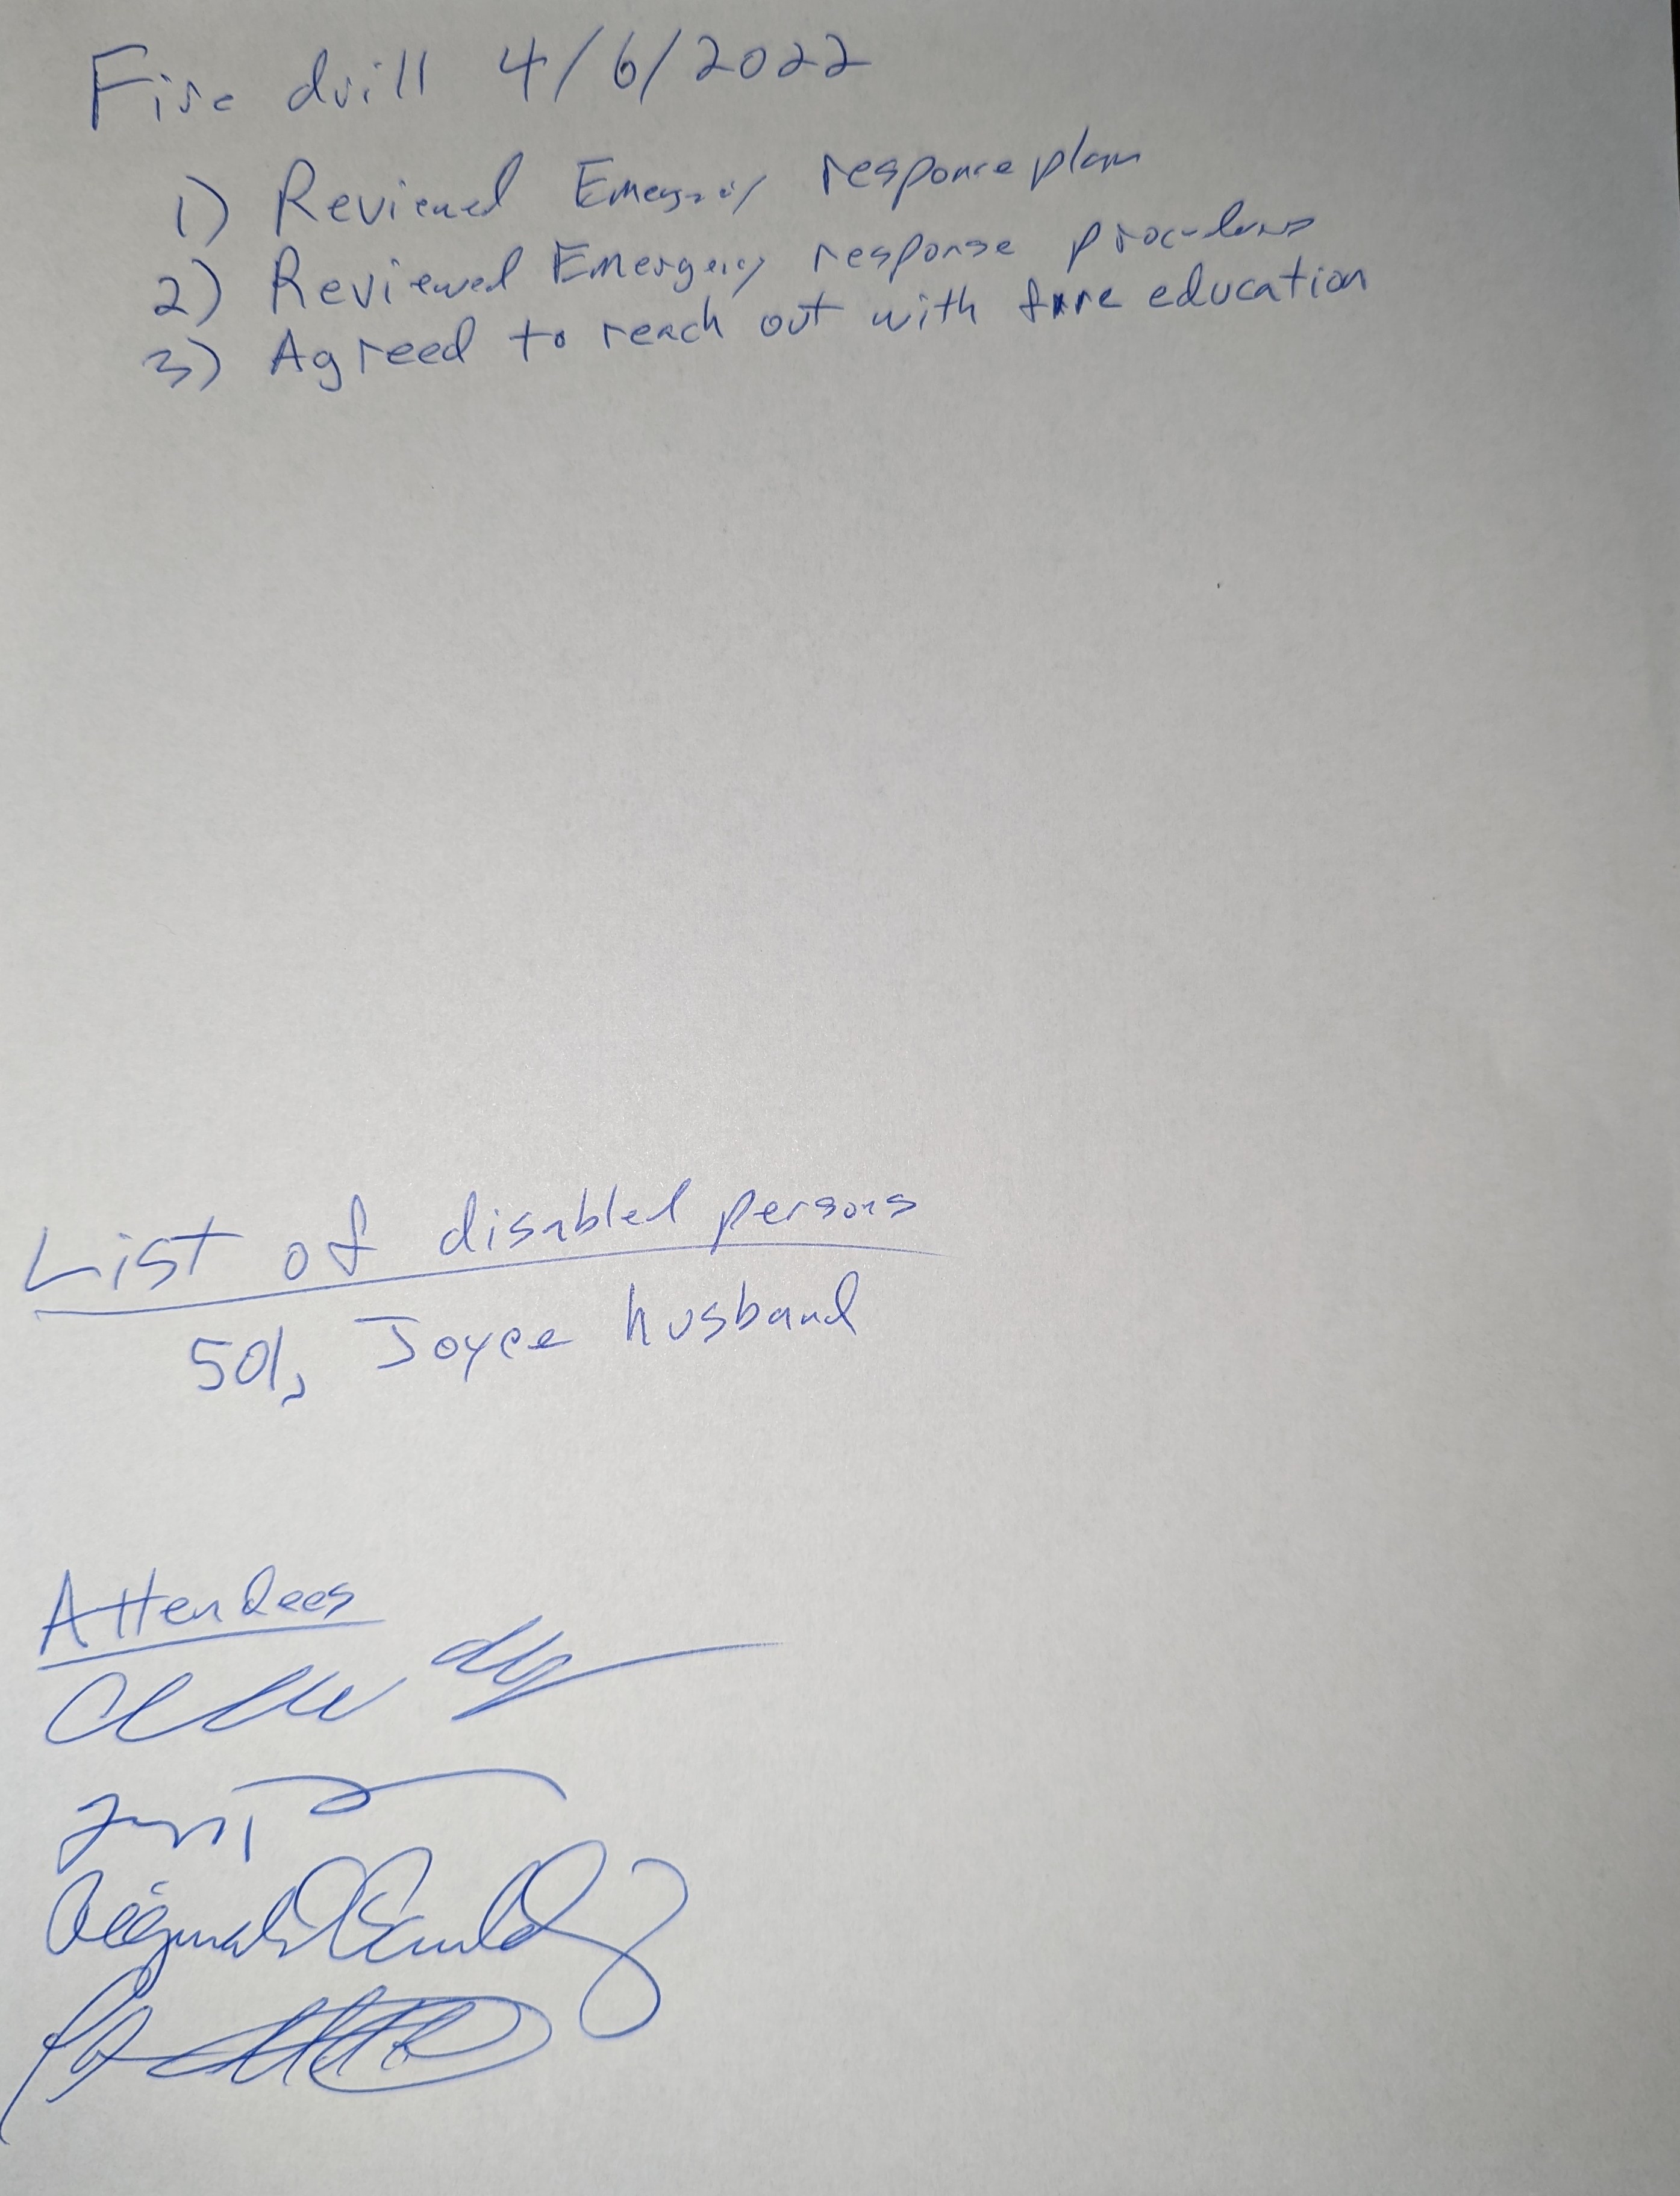 Fire drill 4/6/2022
1) Reviewed Emergency response plan
2) Reviewed Emergency response procedures
3) Agreed to reach out with fire education
List of disabled persons
501, Joyce husband
Attendees